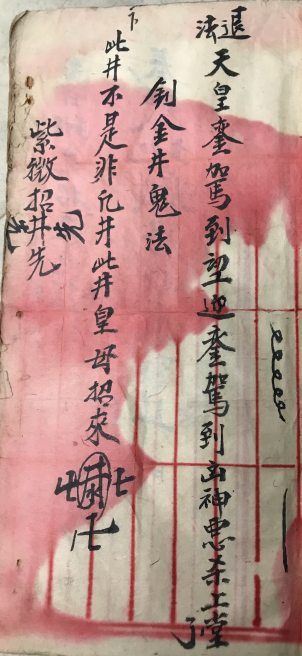 退法
天皇銮驾到望迎銮驾到凶神惡杀上堂了
釗金井鬼法
下
此井不是非凡井此井皇母招來
卍
紫微招井先
先